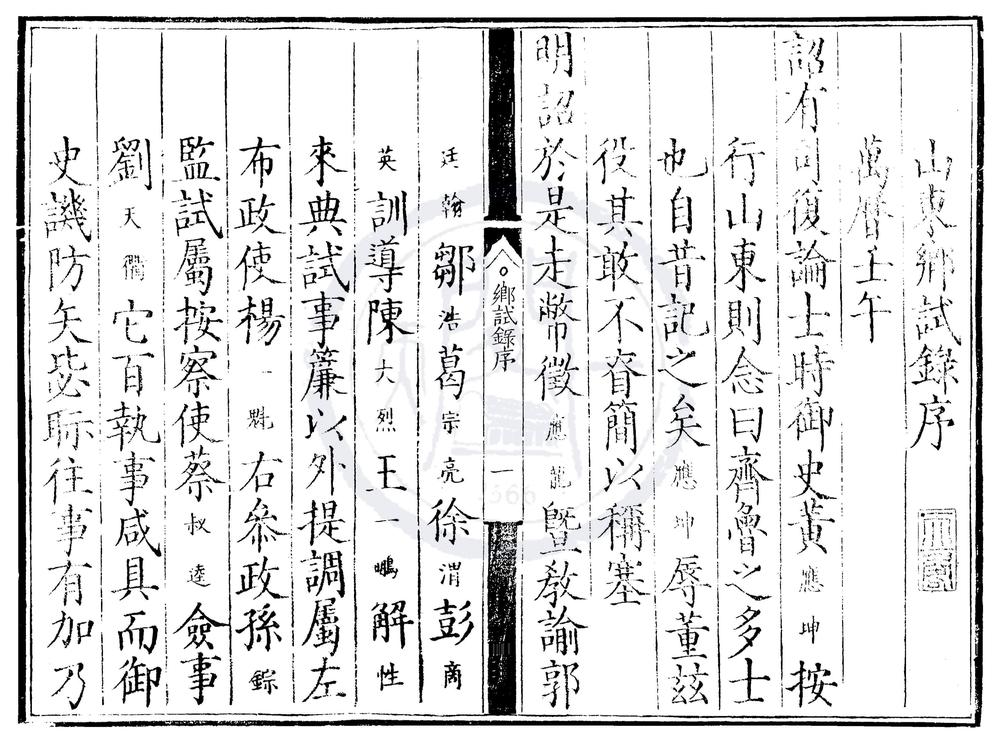 山東鄉試錄序
萬曆壬午
詔有司復論士時御史黃應坤按
行山東則念曰齊魯之多士
也自昔記之矣應坤辱董茲
役其敢不脊簡以稱塞
明詔於是走幣徵應龍曁敎諭郭
鄉試錄序
一
廷翰鄒浩葛宗亮徐渭彭商
英訓導陳大烈王一鵰解性
來典試事簾以外提調屬左
布政使楊一魁右叅政孫錝
監試屬按察使蔡叔逵僉事
劉天衢它百執事咸具而御
史譏防矢毖眎往事有加乃